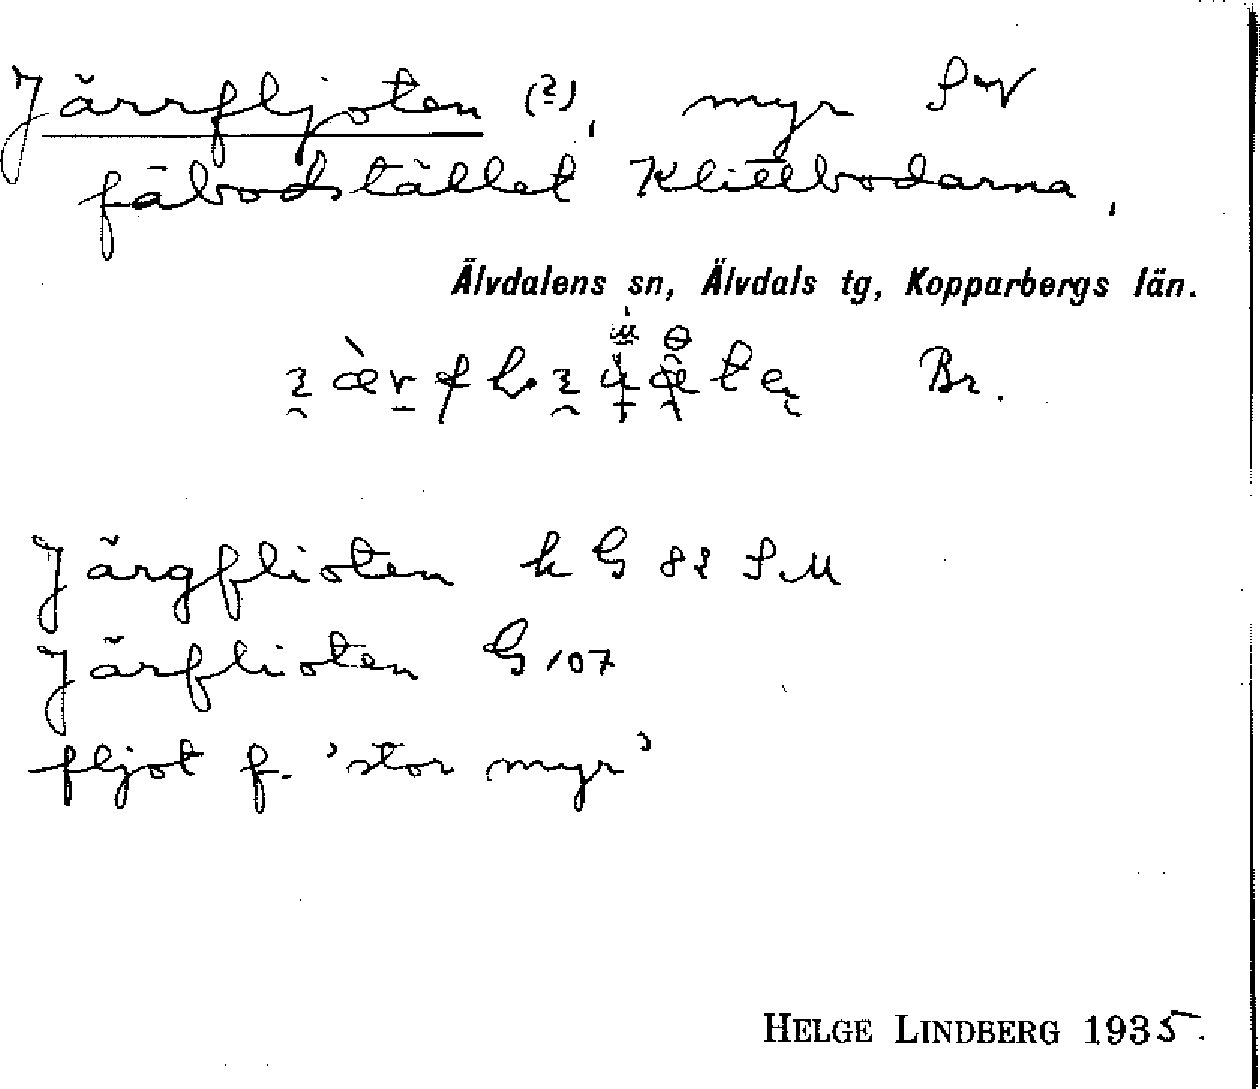 Järrfljoten (?), myr SV
fäbodstället Klittbodarna,
Älvdalens sn, Älvdals tg, Kopparbergs län.
Br.
Järgflioten k G 82 S.M
Järflioten G 107
fljot f. 'stor myr'
HELGE LINDBERG 1935.